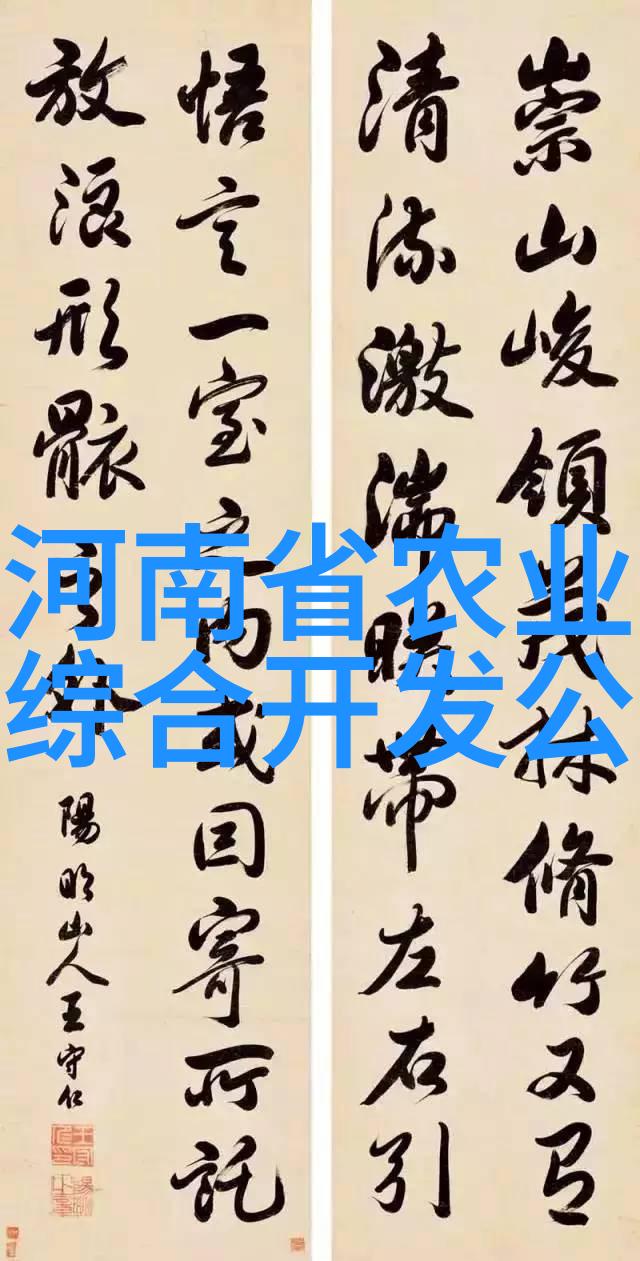 崇山峻領茂林脩竹又有
清流激湍暎帶左右引
悟言一室之内或因寄所託
放浪形骸之外
陽明山人王守仁
河南省农业
综合开发公